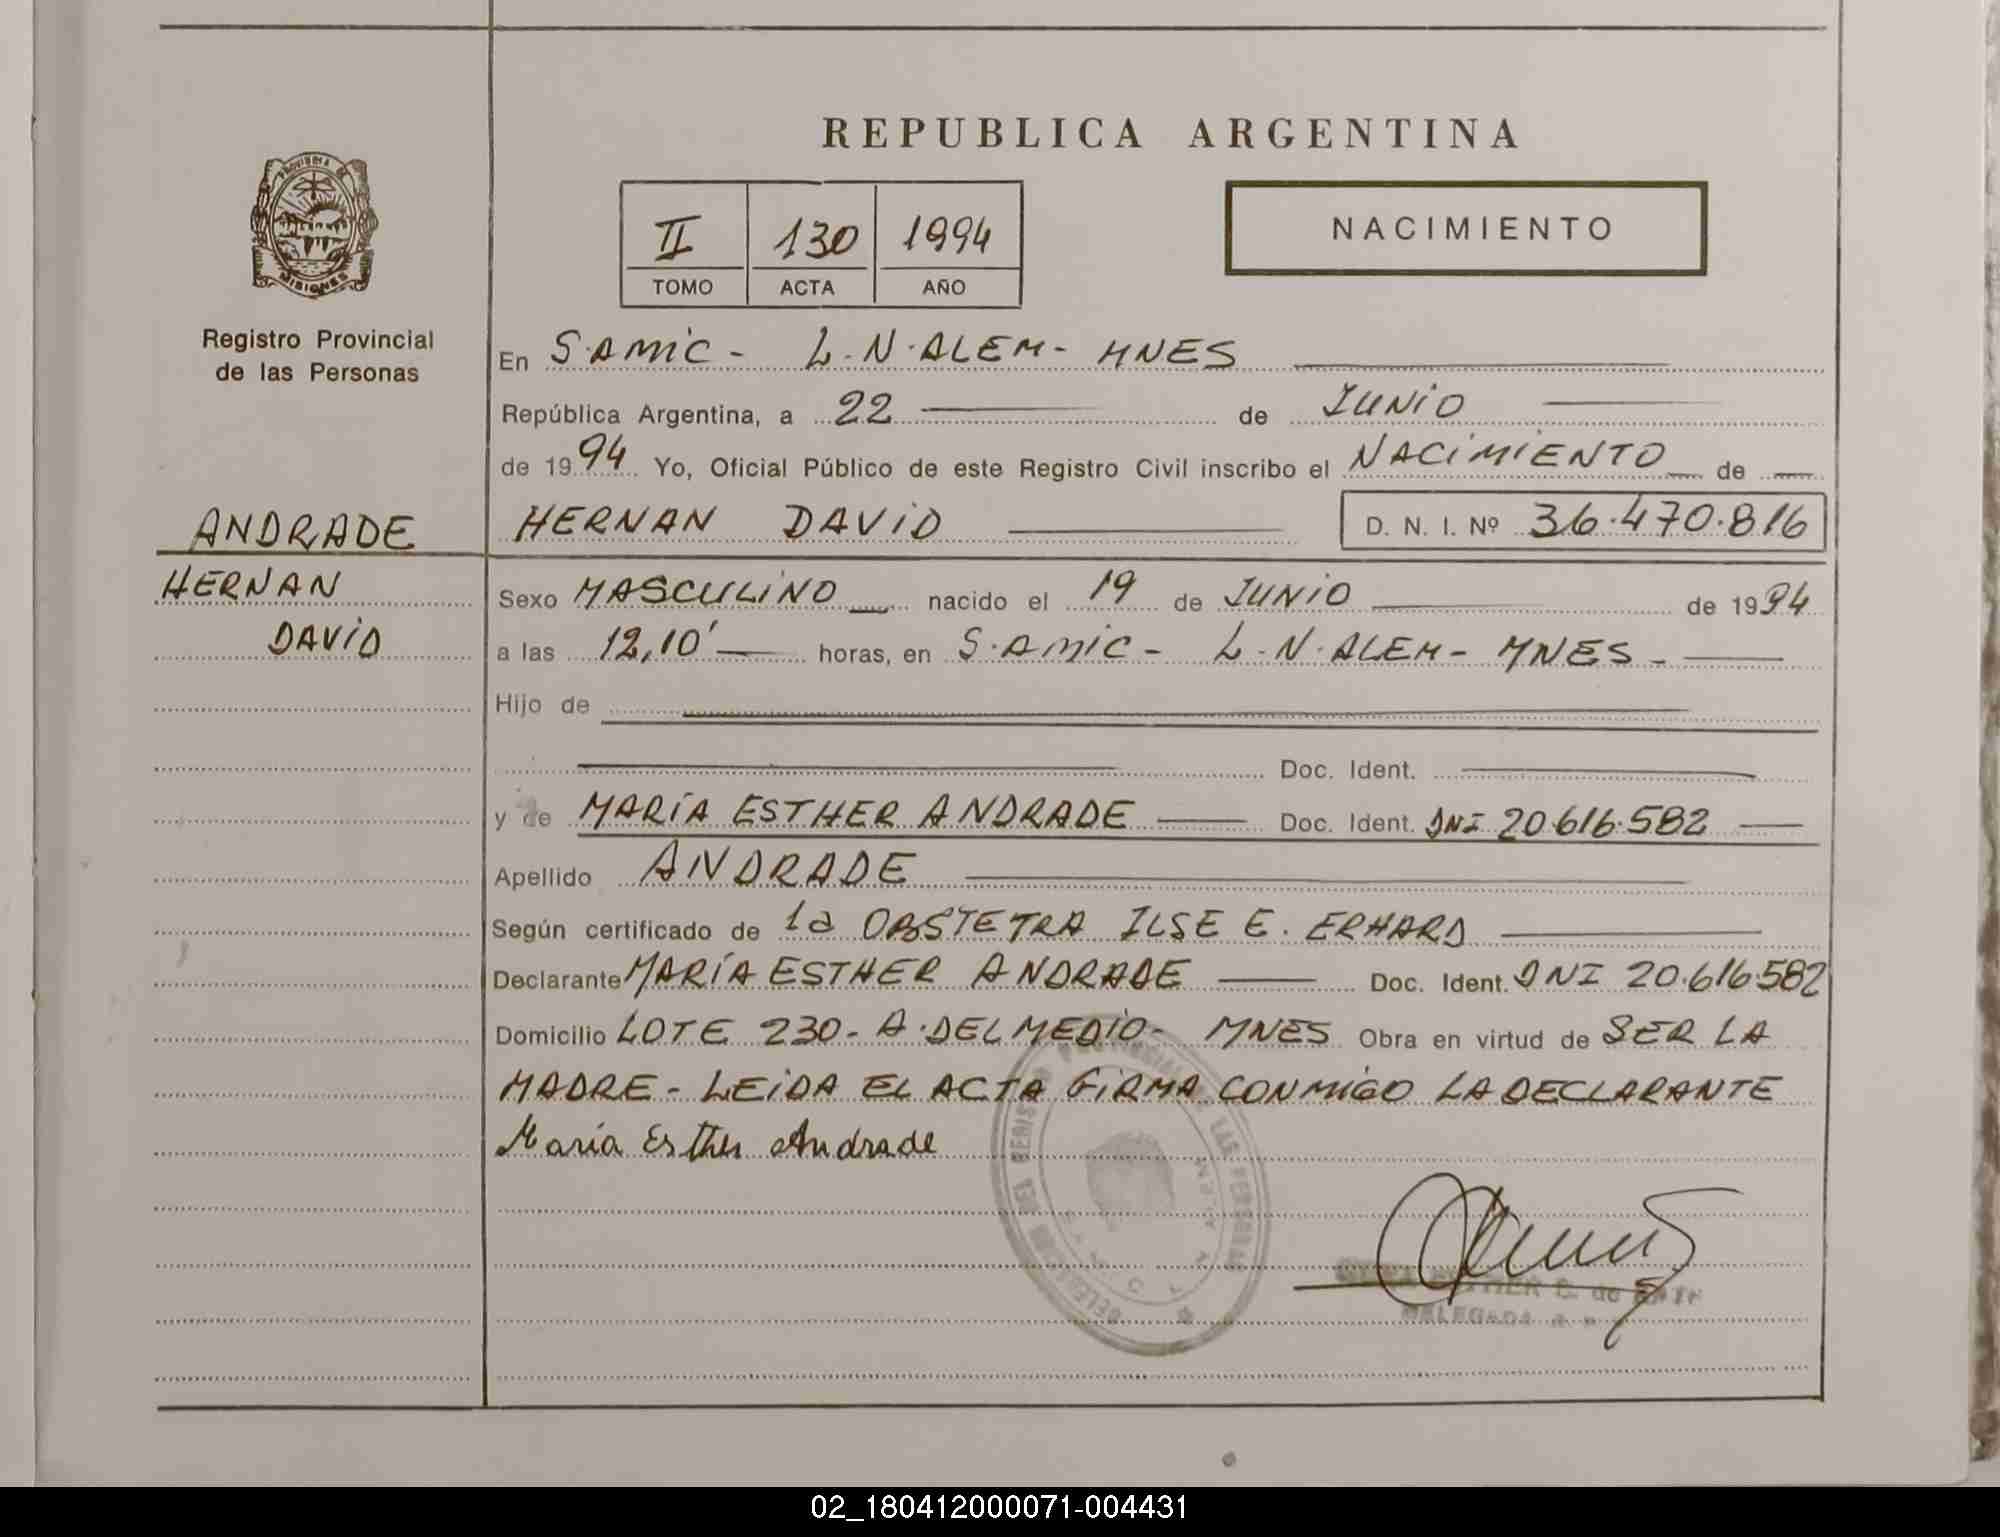 REPUBLICA ARGENTINA
PROVINCIA DE
MISIONES
Registro Provincial
de las Personas
II 130 1994
TOMO ACTA AÑO
NACIMIENTO
En S.AMIC - L.N.ALEM- MNES
República Argentina, a 22 de JUNIO
de 1994 Yo, Oficial Público de este Registro Civil inscribo el NACIMIENTO de
HERNAN DAVID D. N. I. Nº 36.470.816
ANDRADE
HERNAN
DAVID
Sexo MASCULINO nacido el 19 de JUNIO de 1994
a las 12,10' horas, en S.AMIC - L.N.ALEM- MNES -
Hijo de
Doc. Ident.
y de MARÍA ESTHER ANDRADE Doc. Ident. DNI 20.616.582
Apellido ANDRADE
Según certificado de la OBSTETRA ILSE E. ERHARD
Declarante MARÍA ESTHER ANDRADE Doc. Ident. DNI 20.616.582
Domicilio LOTE 230- A.DEL MEDIO- MNES Obra en virtud de SER LA
MADRE - LEIDA EL ACTA FIRMA CONMIGO LA DECLARANTE
María Esther Andrade
DELEGACION DEL REGISTRO PROVINCIAL DE LAS PERSONAS
ESTHER E. de
DELEGADA
02_180412000071-004431